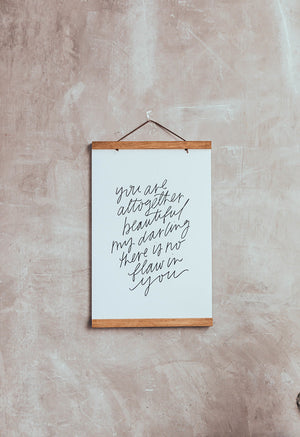 you are
altogether
beautiful
my darling
there is no
flaw in
you